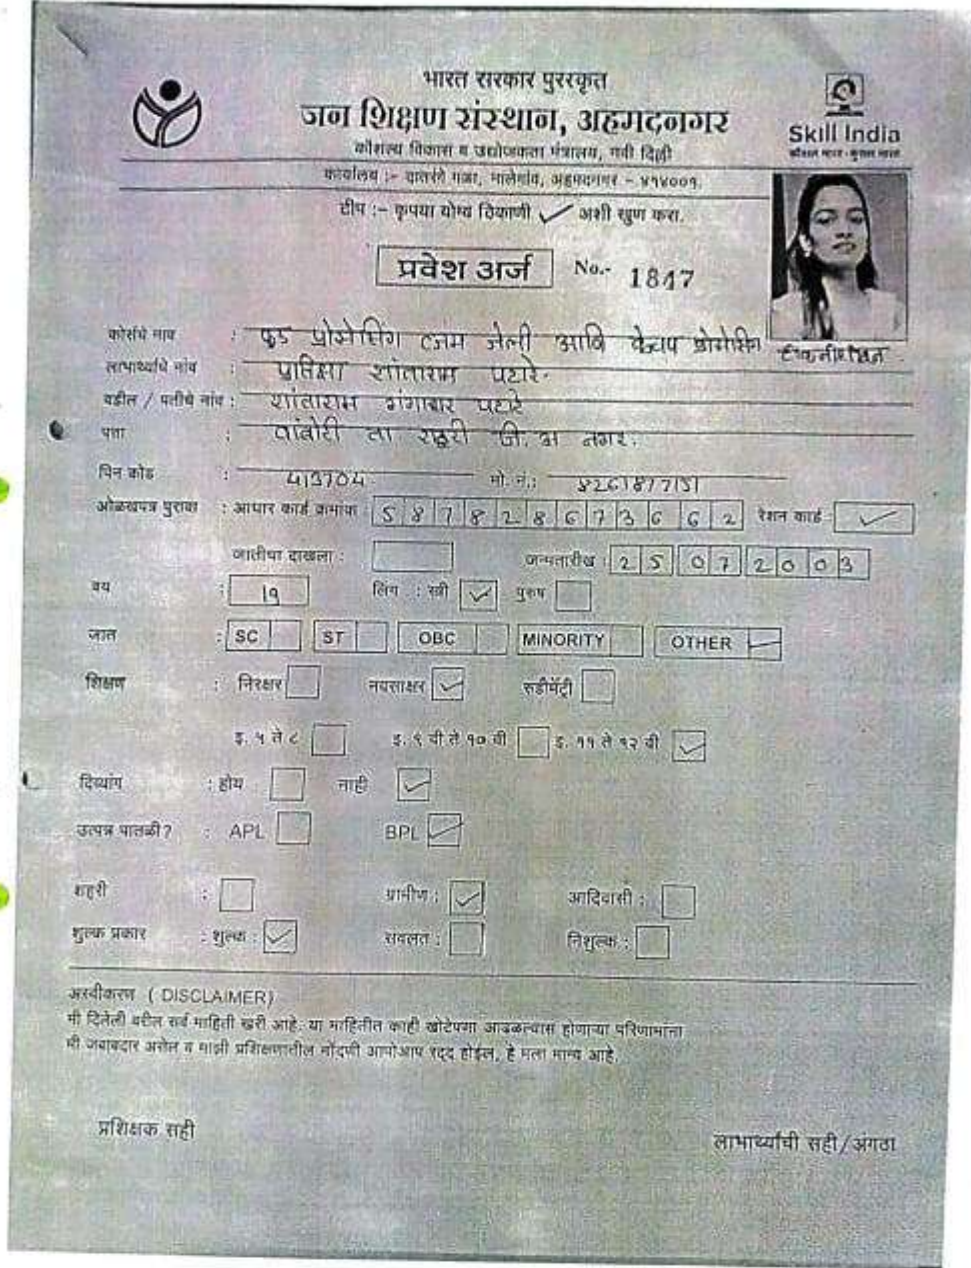 भारत सरकार पुररकृत
जन शिक्षण संस्थान, अहमदनगर
कौशल्य विकास व उद्योजकता मंत्रालय, नवी दिल्ली
Skill India
कौशल भारत - कुशल भारत
कार्यालय :- दातरंगे मळा, नालेगांव, अहमदनगर - ४१४००१.
टीप :- कृपया योग्य ठिकाणी ✓ अशी खुण करा.
प्रवेश अर्ज No.- 1847
कोर्सचे नाव : फुड प्रोसेसिंग जॅम जेली आणि केचप प्रोसेसिंग टेक्नीशियन
लाभार्थ्याचे नांव : शांताराम पटारे.
वडील / पतीचे नांव : शांताराम गंगाधर पटारे
पत्ता : वांबोरी ता राहुरी जि. अ नगर.
पिन कोड : 413704 मो. नं.: 8261877151
ओळखपत्र पुरावा : आधार कार्ड क्रमांक 587828673662 रेशन कार्ड ✓
जातीचा दाखला : जन्मतारीख : 25 07 2003
वय : 19 लिंग : स्त्री ✓ पुरुष
जात : SC ST OBC MINORITY OTHER ✓
शिक्षण : निरक्षर नवसाक्षर ✓ रुडीमेंट्री
इ. ५ ते ८ इ. ९ वी ते १० वी इ. ११ ते १२ वी ✓
दिव्यांग : होय नाही ✓
उत्पन्न पातळी? : APL BPL ✓
शहरी : ग्रामीण : ✓ आदिवासी :
शुल्क प्रकार : शुल्क : ✓ सवलत : निशुल्क :
अस्वीकरण ( DISCLAIMER)
मी दिलेली वरील सर्व माहिती खरी आहे. या माहितीत काही खोटेपणा आढळल्यास होणाऱ्या परिणामांना
मी जबाबदार असेल व माझी प्रशिक्षणातील नोंदणी आपोआप रद्द होईल, हे मला मान्य आहे.
प्रशिक्षक सही
लाभार्थ्यांची सही/अंगठा